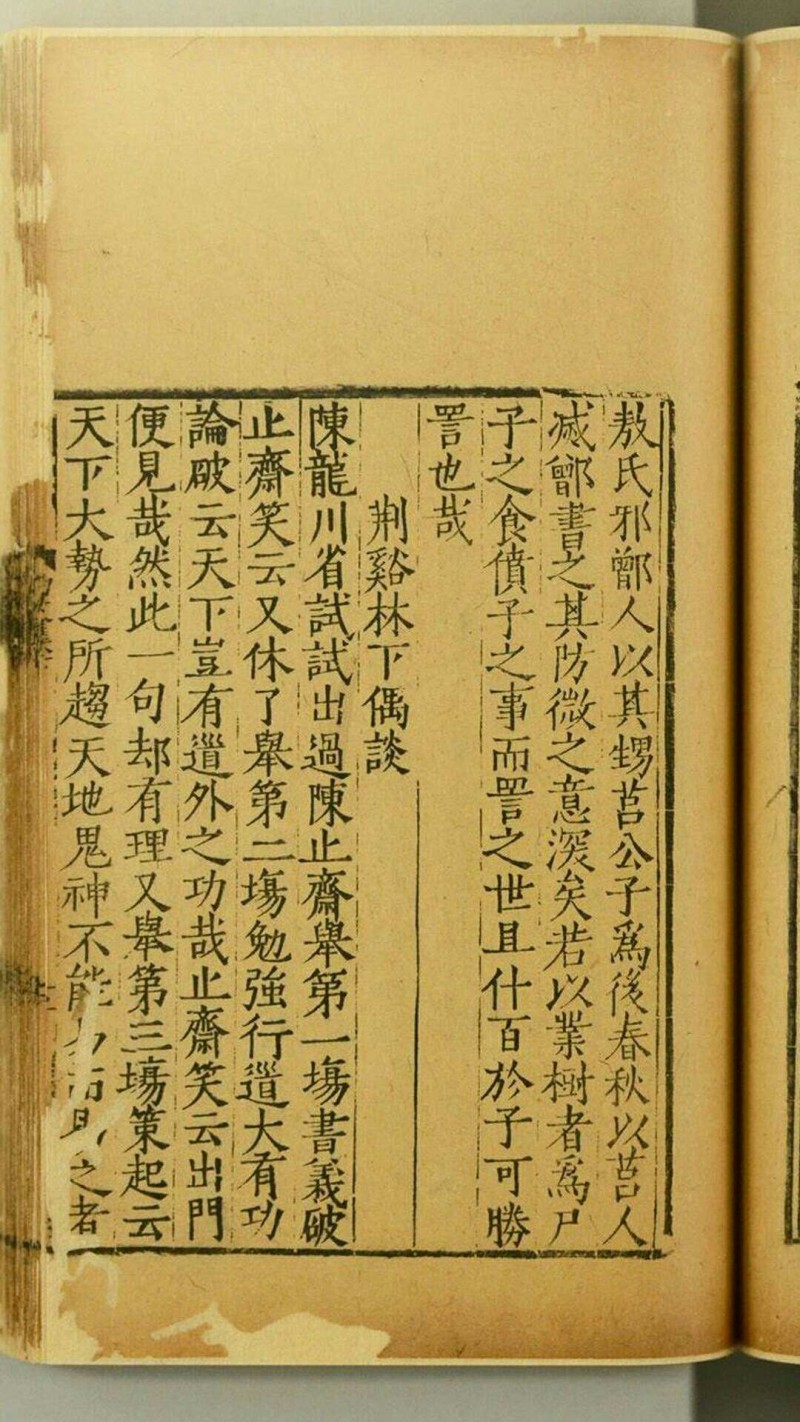 敖氏邪鄫人以其甥莒公子爲後春秋以莒人
滅鄫書之其防微之意深矣若以業樹者爲尸
子之食僨子之事而詈之世且什百於子可勝
詈也哉
荆谿林下偶談
陳龍川省試試出過陳止齋舉第一場書義破
止齋笑云又休了舉第二場勉強行道大有功
論破云天下豈有道外之功哉止齋笑云出門
便見哉然此一句却有理又舉第三場策起云
天下大勢之所趨天地鬼神不能 之者